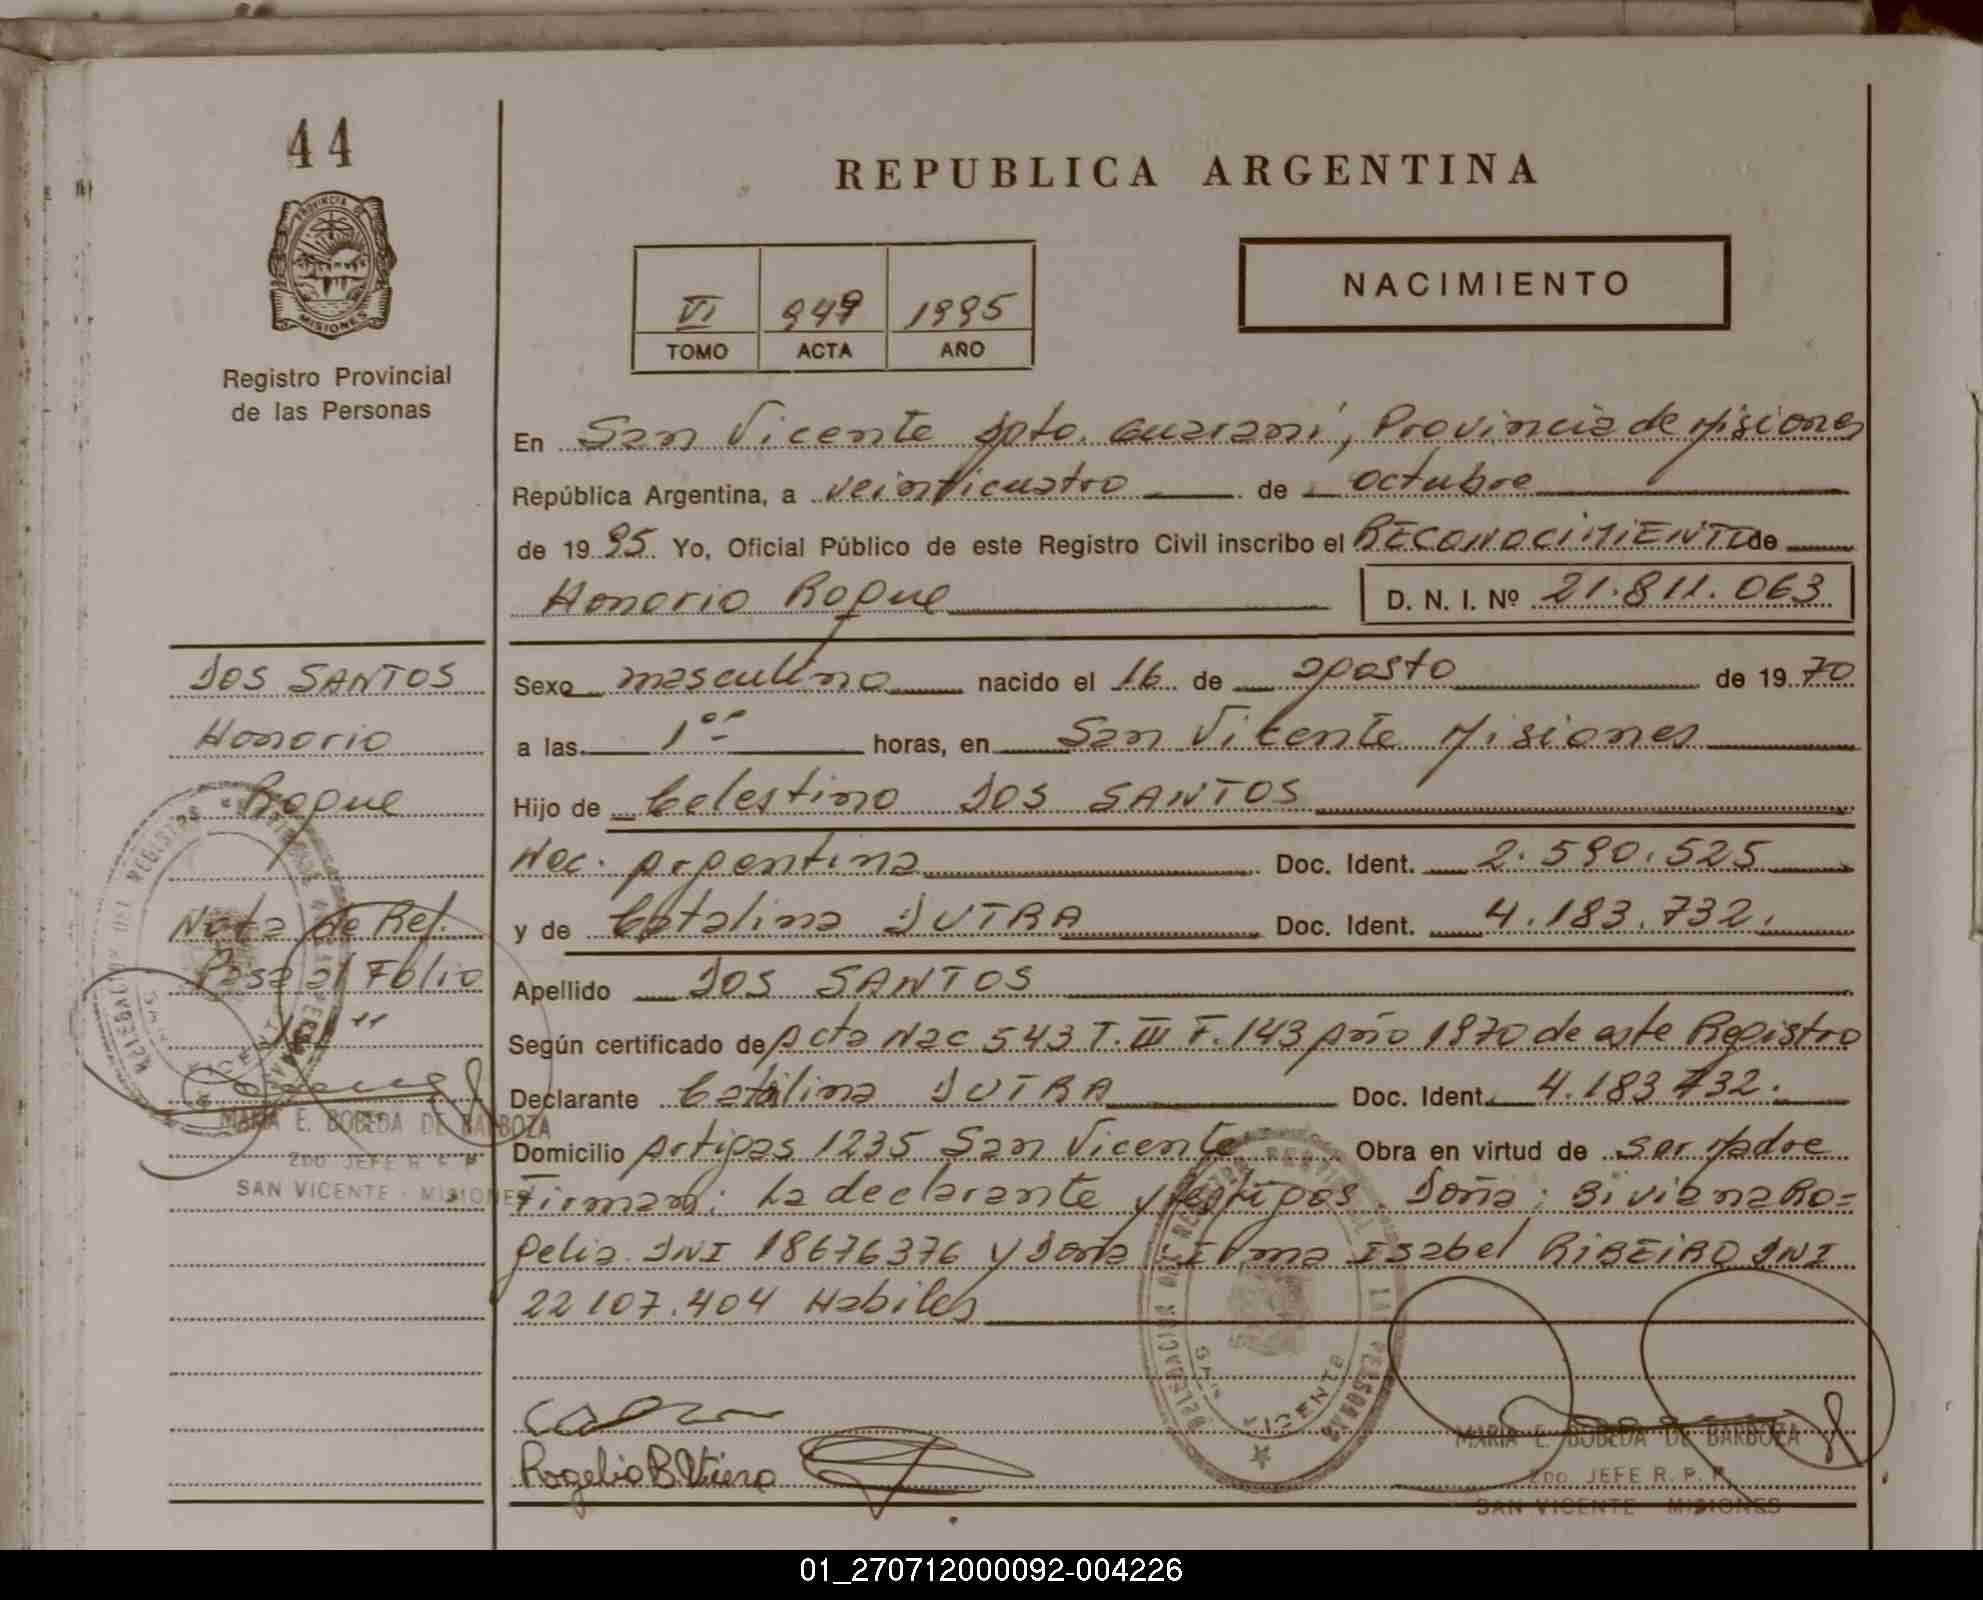 44
PROVINCIA DE
MISIONES
Registro Provincial
de las Personas
REPUBLICA ARGENTINA
NACIMIENTO
VI 949 1995
TOMO ACTA AÑO
En San Vicente Dpto. Guaraní, Provincia de Misiones
República Argentina, a veinticuatro de octubre
de 1995 Yo, Oficial Público de este Registro Civil inscribo el RECONOCIMIENTO de
Honorio Roque D. N. I. Nº 21.811.063
DOS SANTOS
Honorio
Roque
Nota de Ref.
Pasa al Folio
MARIA E. BOBEDA DE BARBOZA
2DO JEFE R P P
SAN VICENTE - MISIONES
Sexo masculino nacido el 16 de agosto de 1970
a las 1ºº horas, en San Vicente Misiones
Hijo de Celestino DOS SANTOS
Nac. Argentina Doc. Ident. 2.590.525
y de Catalina DUTRA Doc. Ident. 4.183.732.
Apellido DOS SANTOS
Según certificado de Acta Nac 543 T. III F. 143 Año 1970 de este Registro
Declarante Catalina DUTRA Doc. Ident. 4.183.732.
Domicilio Artigas 1235 San Vicente Obra en virtud de ser Madre
Firman: La declarante y testigos Doña: Viviana Ro=
gelia DNI 18676376 y Doña Irma Isabel RIBEIRO DNI
22107.404 Habiles
Rogelia B. Viera
DELEGACION DEL REGISTRO DE LAS PERSONAS
SAN VICENTE
MARIA E. BOBEDA DE BARBOZA
2DO. JEFE R. P. P.
SAN VICENTE MISIONES
01_270712000092-004226